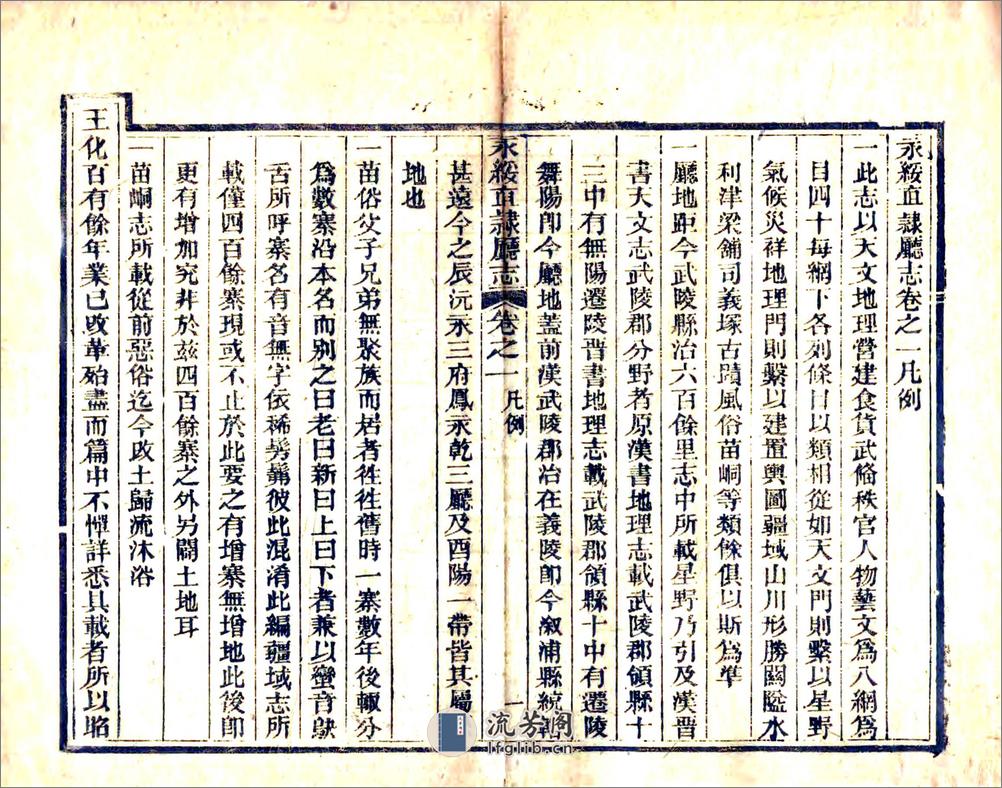 永綏直隸廳志卷之一凡例
一此志以天文地理營建食貨武備秩官人物藝文為八綱為
目四十每綱下各列條目以類相從如天文門則繫以星野
氣候災祥地理門則繫以建置輿圖疆域山川形勝關隘水
利津梁舖司義塚古蹟風俗苗峒等類餘俱以斯為準
一廳地距今武陵縣治六百餘里志中所載星野乃引及漢晉
書天文志武陵郡分野者原漢書地理志載武陵郡領縣十
三中有無陽遷陵晉書地理志載武陵郡領縣十中有遷陵
舞陽卽今廳地蓋前漢武陵郡治在義陵卽今溆浦縣統轄
永綏直隸廳志 卷之一 凡例 一
甚遠今之辰沅永三府鳳永乾三廳及酉陽一帶皆其屬
地也
一苗俗父子兄弟無聚族而居者徃徃舊時一寨數年後輙分
為數寨沿本名而別之曰老曰新曰上曰下者兼以蠻音鴃
舌所呼寨名有音無字依稀髣髴彼此混淆此編疆域志所
載僅四百餘寨現或不止於此要之有增寨無增地此後卽
更有增加究非於兹四百餘寨之外另闢土地耳
一苗峒志所載從前惡俗迄今改土歸流沐浴
王化百有餘年業已改革殆盡而篇中不憚詳悉具載者所以昭
流芳阁
lfglib.cn